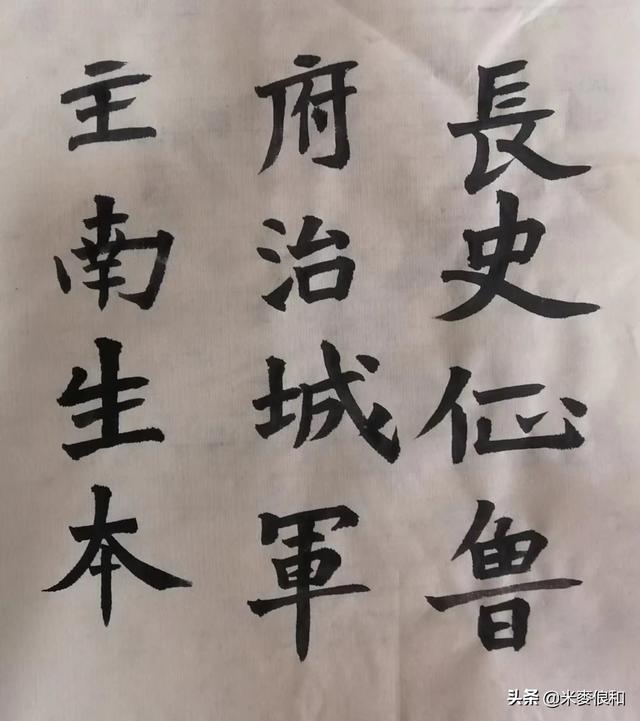 長史佂鲁
府治城軍
主南生本
头条 @米麥俍和